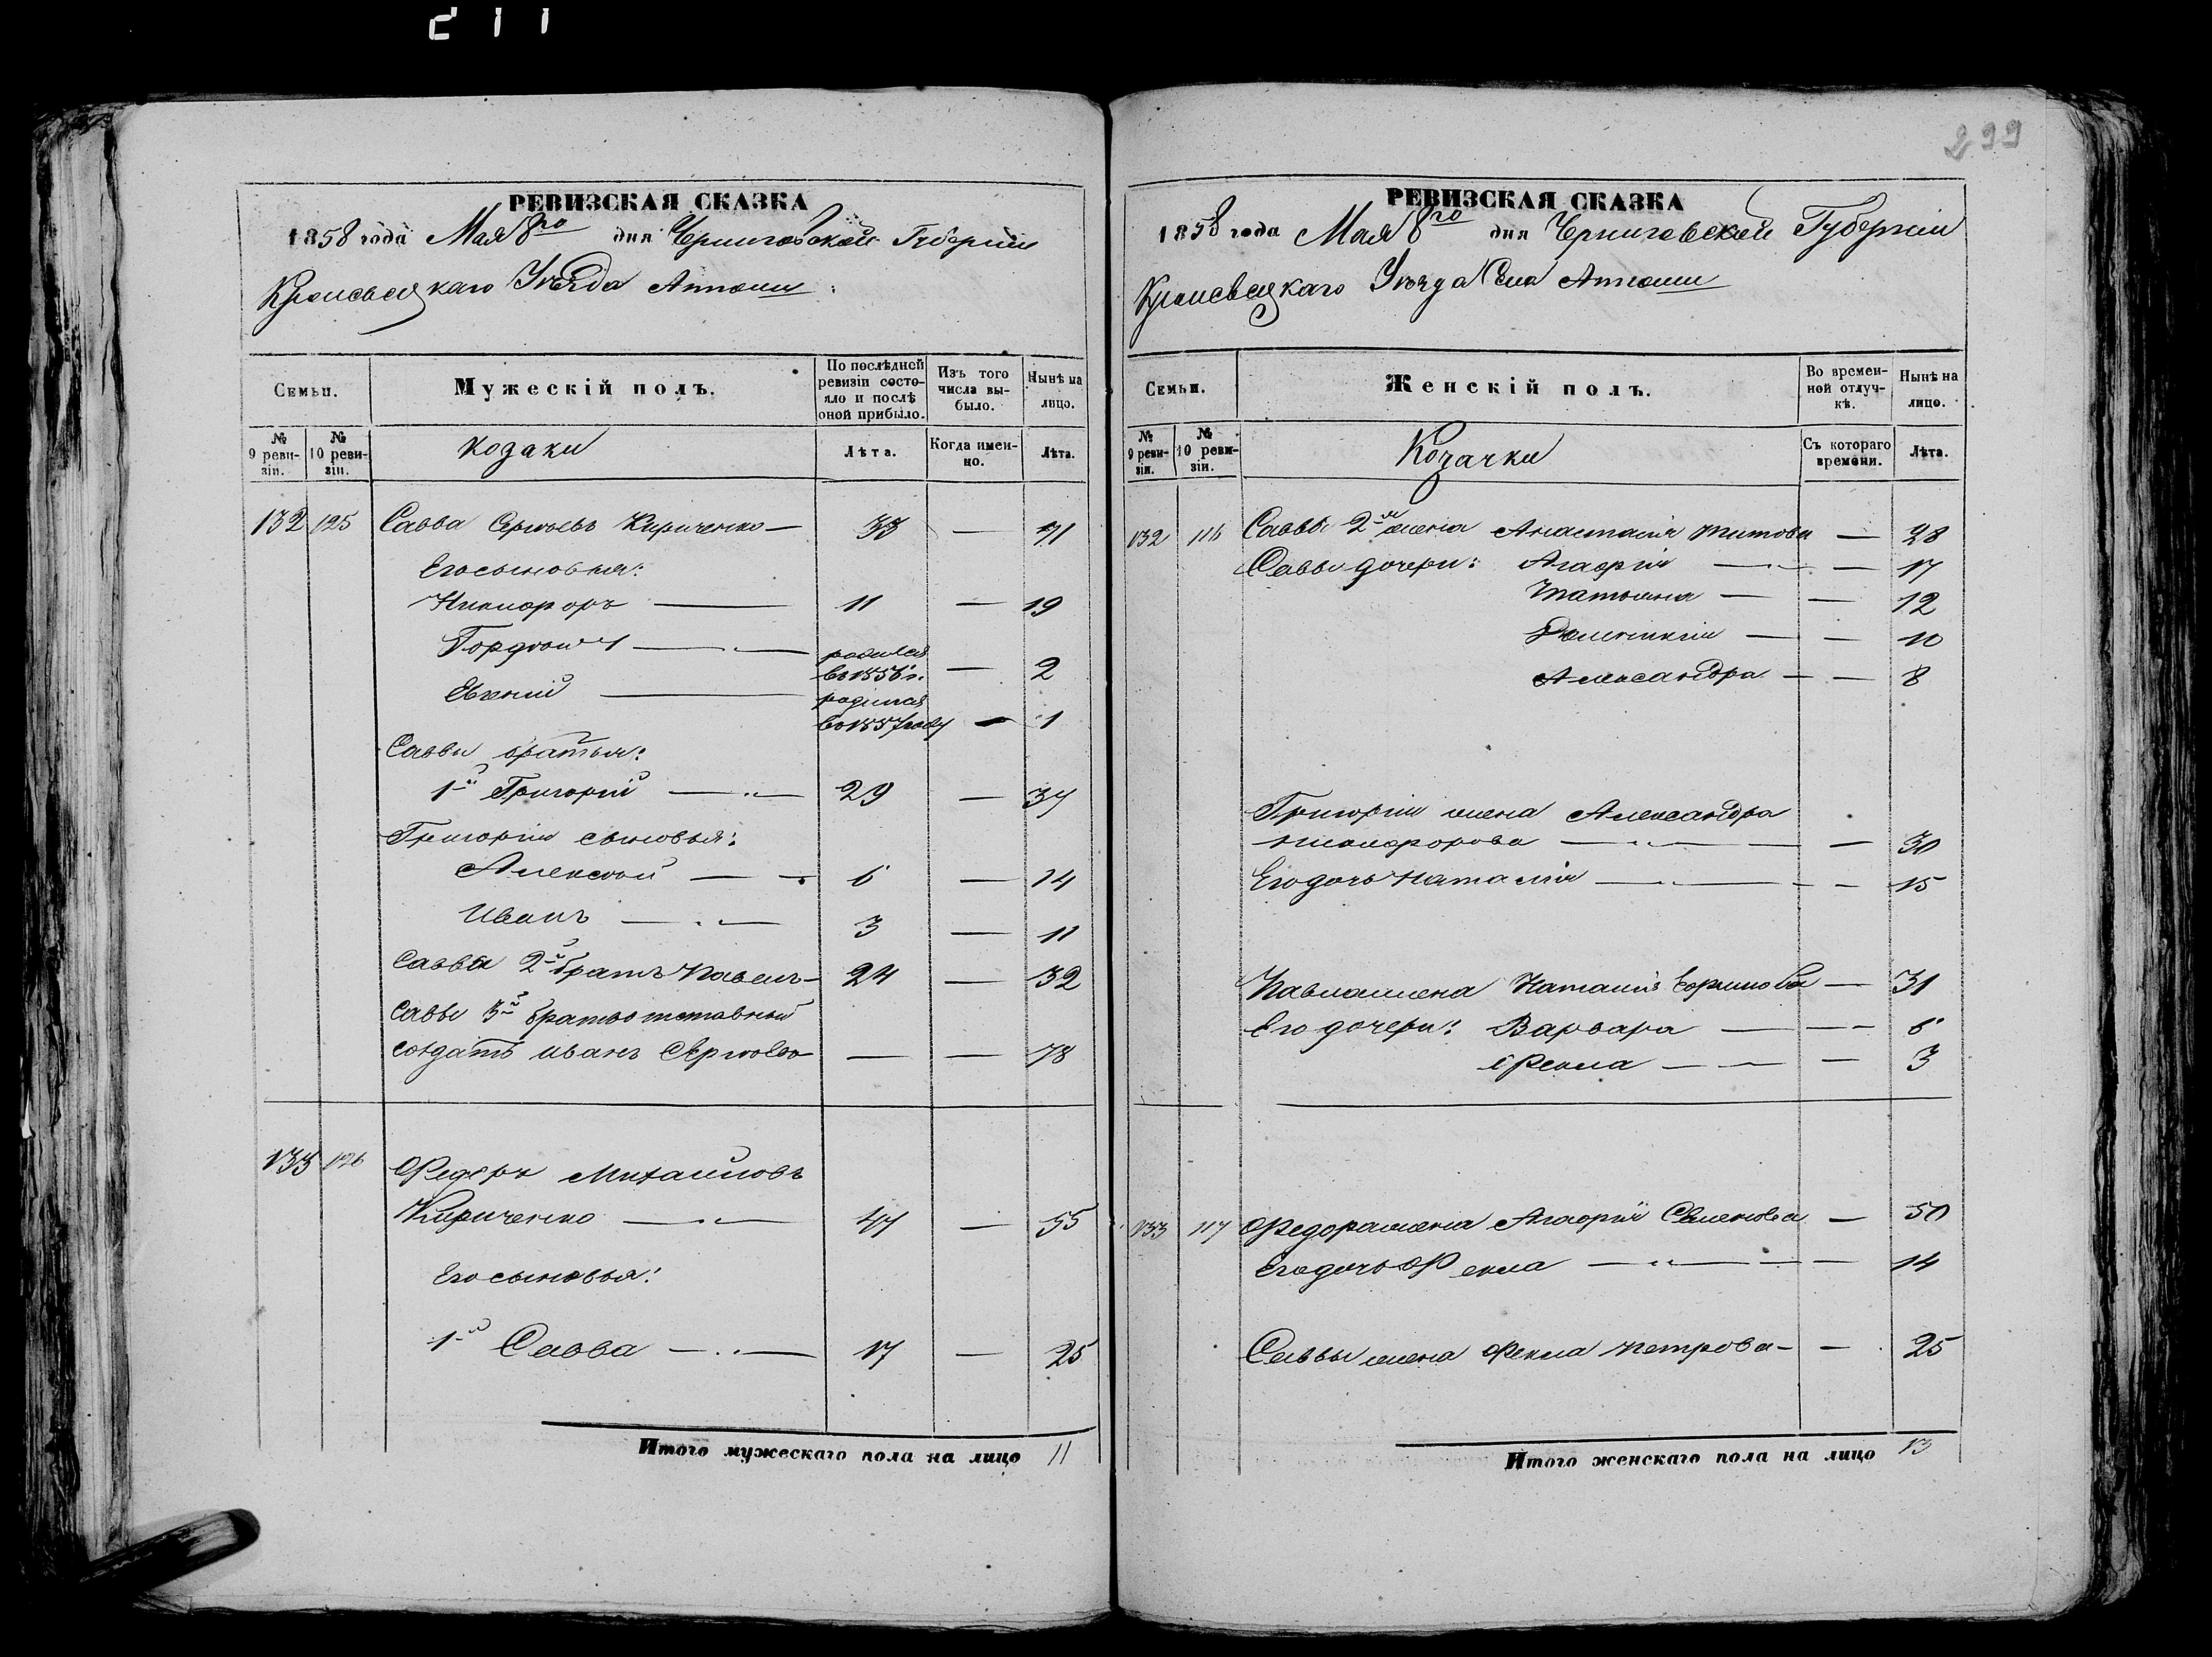 211
299
РЕВИЗСКАЯ СКАЗКА
1858 года Мая 8го дня Черниговской Губерніи
Кролевецкаго Уѣзда
Семьи.
Мужескій полъ.
По послѣдней ревизіи состояло и послѣ оной прибыло.
Изъ того числа выбыло.
Нынѣ на лицо.
№ 9 ревизіи.
№ 10 ревизіи.
козаки
Лѣта.
Когда именно.
Лѣта.
132 125 Савва Сергѣевъ Кириченко — 33 — 41
Его сыновья:
Никифоръ — 11 — 19
Гордѣй 1 — родился в 1856 г. — 2
Евгений — родился в 1857 году — 1
Саввы братья:
1й Григорий — 29 — 37
Григорія сыновья:
Алексѣй — 6 — 14
Иванъ — 3 — 11
Саввы 2й братъ Павелъ — 24 — 32
Саввы 3й братъ отставный
солдатъ Иванъ Сергѣевъ — — 78
133 126 Федоръ Михайловъ
Кириченко — 47 — 55
Его сыновья:
1й Савва — 17 — 25
Итого мужескаго пола на лицо 11
РЕВИЗСКАЯ СКАЗКА
1858 года Мая 8го дня Черниговской Губерніи
Кролевецкаго Уѣзда Села
Семьи.
Женскій полъ.
Во временной отлучкѣ.
Нынѣ на лицо.
№ 9 ревизіи.
№ 10 ревизіи.
Козачки
Съ котораго времени.
Лѣта.
132 116 Саввы 2я жена Анастасія Титова — 28
Саввы дочери: Агафія — 17
Татьяна — 12
— 10
Александра — 8
Григорія жена Александра
Никифорова — 30
Его дочь Наталія — 15
Павла жена Наталія — 31
Его дочери: Варвара — 6
Фекла — 3
133 117 Федора жена Агафія Семенова — 50
Его дочь Фекла — 14
Саввы жена Фекла Петрова — 25
Итого женскаго пола на лицо 13